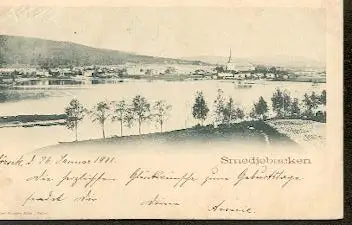 Smedjebacken
d. 26 Januar 1901.
Die herzlichsten Glückwünsche zum Geburtstage
sendet dir deine Annie.